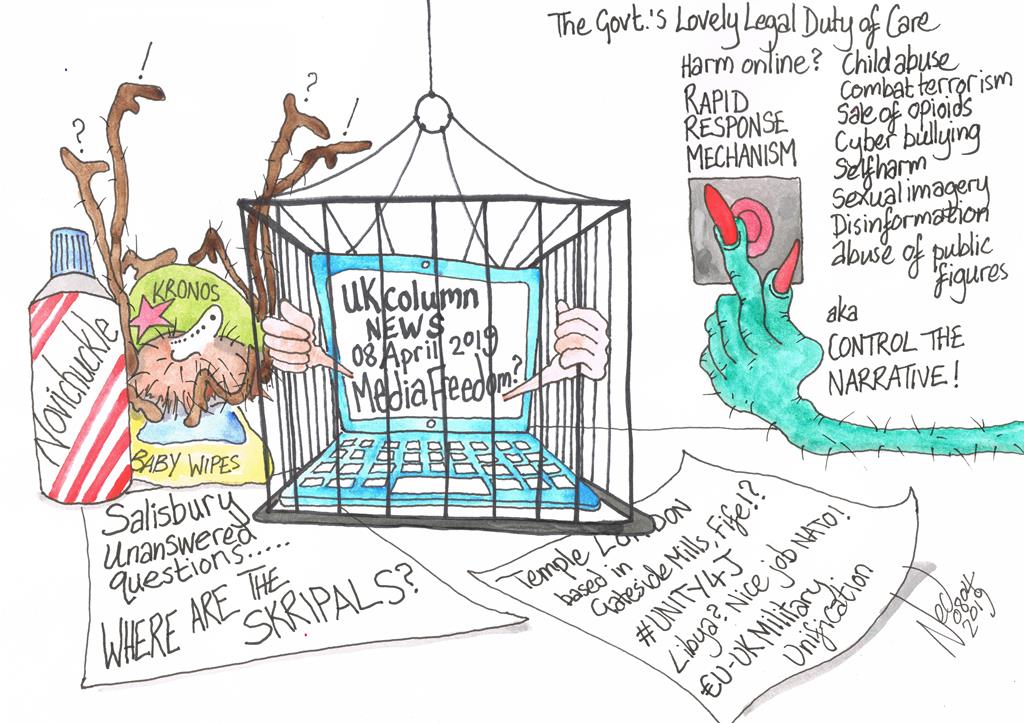 The Govt.'s Lovely Legal Duty of Care
Harm online?
RAPID
RESPONSE
MECHANISM
Child abuse
Combat terrorism
Sale of opioids
Cyber bullying
Selfharm
Sexual imagery
Disinformation
abuse of public
figures
aka
CONTROL THE
NARRATIVE!
? ! ? !
KRONOS
Novichuckle
BABY WIPES
UK column
NEWS
08 April 2019
Media Feedom?
Salisbury
unanswered
questions......
WHERE ARE THE
SKRIPALS?
Temple LONDON
based in
Gateside Mills, Fife!?
#UNITY4J
Libya? Nice job NATO!
€U-UK Military
Unification
0804
2019